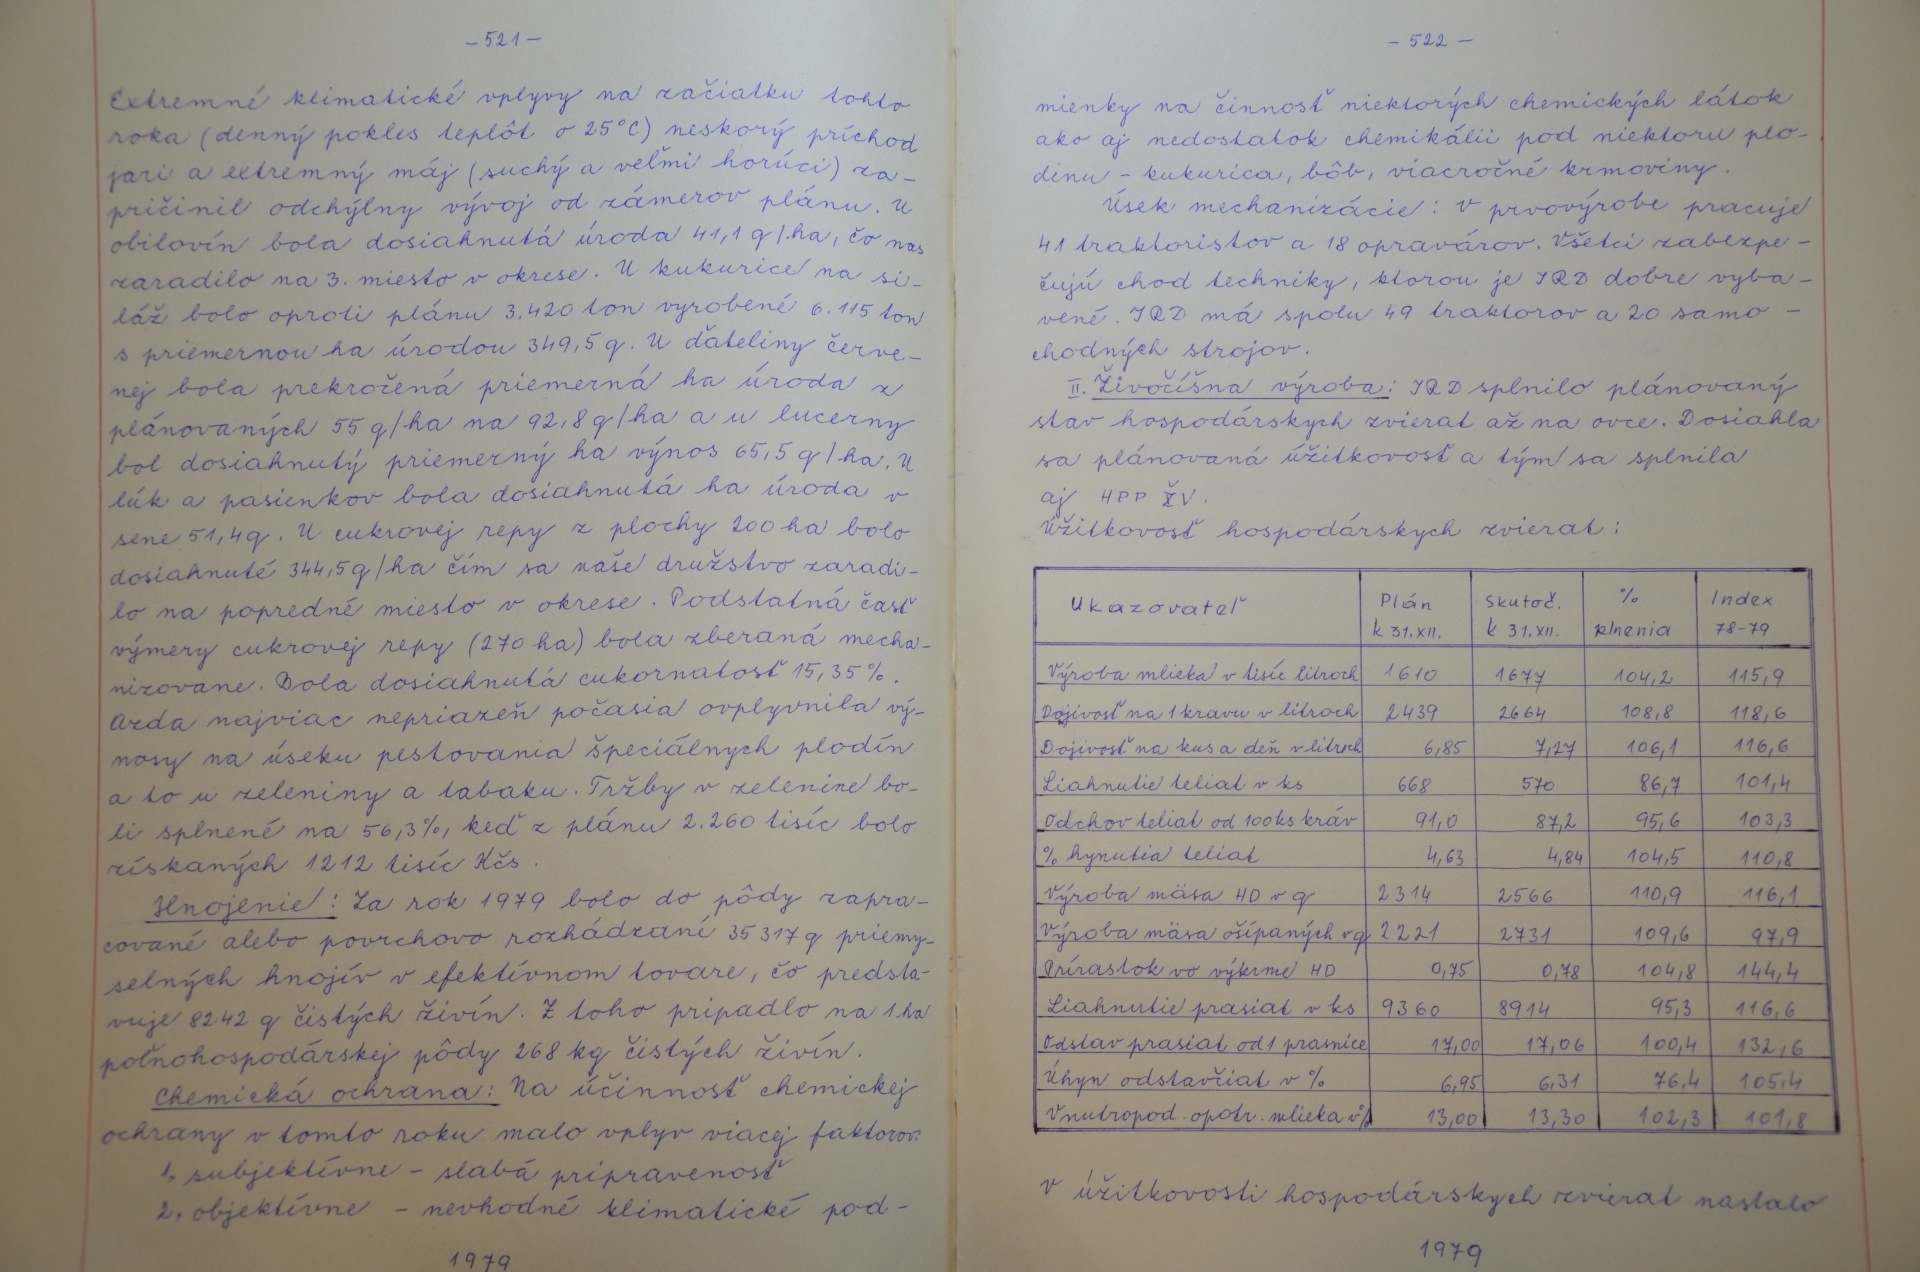 - 521 -
Extremné klimatické vplyvy na začiatku tohto
roka (denný pokles teplôt o 25°C) neskorý príchod
jari a extremný máj (suchý a veľmi horúci) za-
pričinil odchýlny vývoj od zámerov plánu. U
obilovín bola dosiahnutá úroda 41,1 q/ha, čo nás
zaradilo na 3. miesto v okrese. U kukurice na si-
láž bolo oproti plánu 3.420 ton vyrobené 6.115 ton
s priemernou ha úrodou 349,5 q. U ďateliny červe-
nej bola prekročená priemerná ha úroda z
plánovaných 55 q/ha na 92,8 q/ha a u lucerny
bol dosiahnutý priemerný ha výnos 65,5 q/ha. U
lúk a pasienkov bola dosiahnutá ha úroda v
sene 51,4 q. U cukrovej repy z plochy 200 ha bolo
dosiahnuté 344,5 q/ha čím sa naše družstvo zaradi-
lo na popredné miesto v okrese. Podstatná časť
výmery cukrovej repy (270 ha) bola zberaná mecha-
nizovane. Bola dosiahnutá cukornatosť 15,35 %.
Azda najviac nepriazeň počasia ovplyvnila vý-
nosy na úseku pestovania špeciálnych plodín
a to u zeleniny a tabaku. Tržby v zelenine bo-
li splnené na 56,3 %, keď z plánu 2.260 tisíc bolo
získaných 1212 tisíc Kčs.
Hnojenie: Za rok 1979 bolo do pôdy zapra-
cované alebo povrchovo rozhádzané 35 317 q priemy-
selných hnojív v efektívnom tovare, čo predsta-
vuje 8242 q čistých živín. Z toho pripadlo na 1 ha
poľnohospodárskej pôdy 268 kg čistých živín.
Chemická ochrana: Na účinnosť chemickej
ochrany v tomto roku malo vplyv viacej faktorov:
1, subjektívne - slabá pripravenosť
2, objektívne - nevhodné klimatické pod-
1979
- 522 -
mienky na činnosť niektorých chemických látok
ako aj nedostatok chemikálii pod niektoru plo-
dinu - kukurica, bôb, viacročné krmoviny.
Úsek mechanizácie: V prvovýrobe pracuje
41 traktoristov a 18 opravárov. Všetci zabezpe-
čujú chod techniky, ktorou je JRD dobre vyba-
vené. JRD má spolu 49 traktorov a 20 samo-
chodných strojov.
II. Živočíšna výroba: JRD splnilo plánovaný
stav hospodárskych zvierat až na ovce. Dosiahla
sa plánovaná úžitkovosť a tým sa splnila
aj HPP ŽV.
Úžitkovosť hospodárskych zvierat:
Ukazovateľ Plán k 31.XII. skutoč. k 31.XII. % plnenia Index 78-79
Výroba mlieka v tisíc litroch 1610 1677 104,2 115,9
Dojivosť na 1 kravu v litroch 2439 2664 108,8 118,6
Dojivosť na kus a deň v litroch 6,85 7,27 106,1 116,6
Liahnutie teliat v ks 668 570 86,7 101,4
Odchov teliat od 100ks kráv 91,0 87,2 95,6 103,3
% hynutia teliat 4,63 4,84 104,5 110,8
Výroba mäsa HD v q 2314 2566 110,9 116,1
Výroba mäsa ošípaných v q 2221 2731 109,6 97,9
Prírastok vo výkrme HD 0,75 0,78 104,8 144,4
Liahnutie prasiat v ks 9360 8914 95,3 116,6
Odstav prasiat od 1 prasnice 17,00 17,06 100,4 132,6
Úhyn odstavčiat v % 6,95 6,31 76,4 105,4
Vnutropod. opotr. mlieka v % 13,00 13,30 102,3 101,8
V úžitkovosti hospodárskych zvierat nastalo
1979